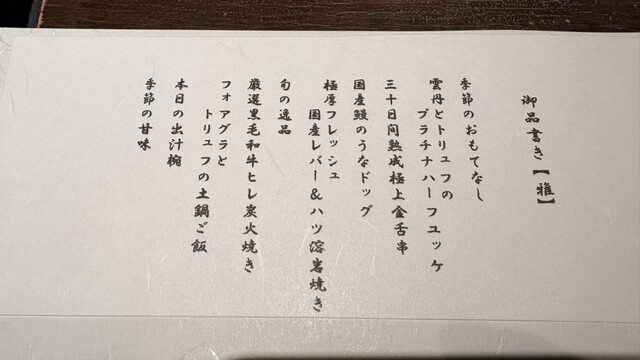 御品書き【雅】
季節のおもてなし
雲丹とトリュフの
プラチナハーフユッケ
三十日間熟成極上金舌串
国産鰻のうなドッグ
極厚フレッシュ
国産レバー＆ハツ溶岩焼き
旬の逸品
厳選黒毛和牛ヒレ炭火焼き
フォアグラと
トリュフの土鍋ご飯
本日の出汁椀
季節の甘味